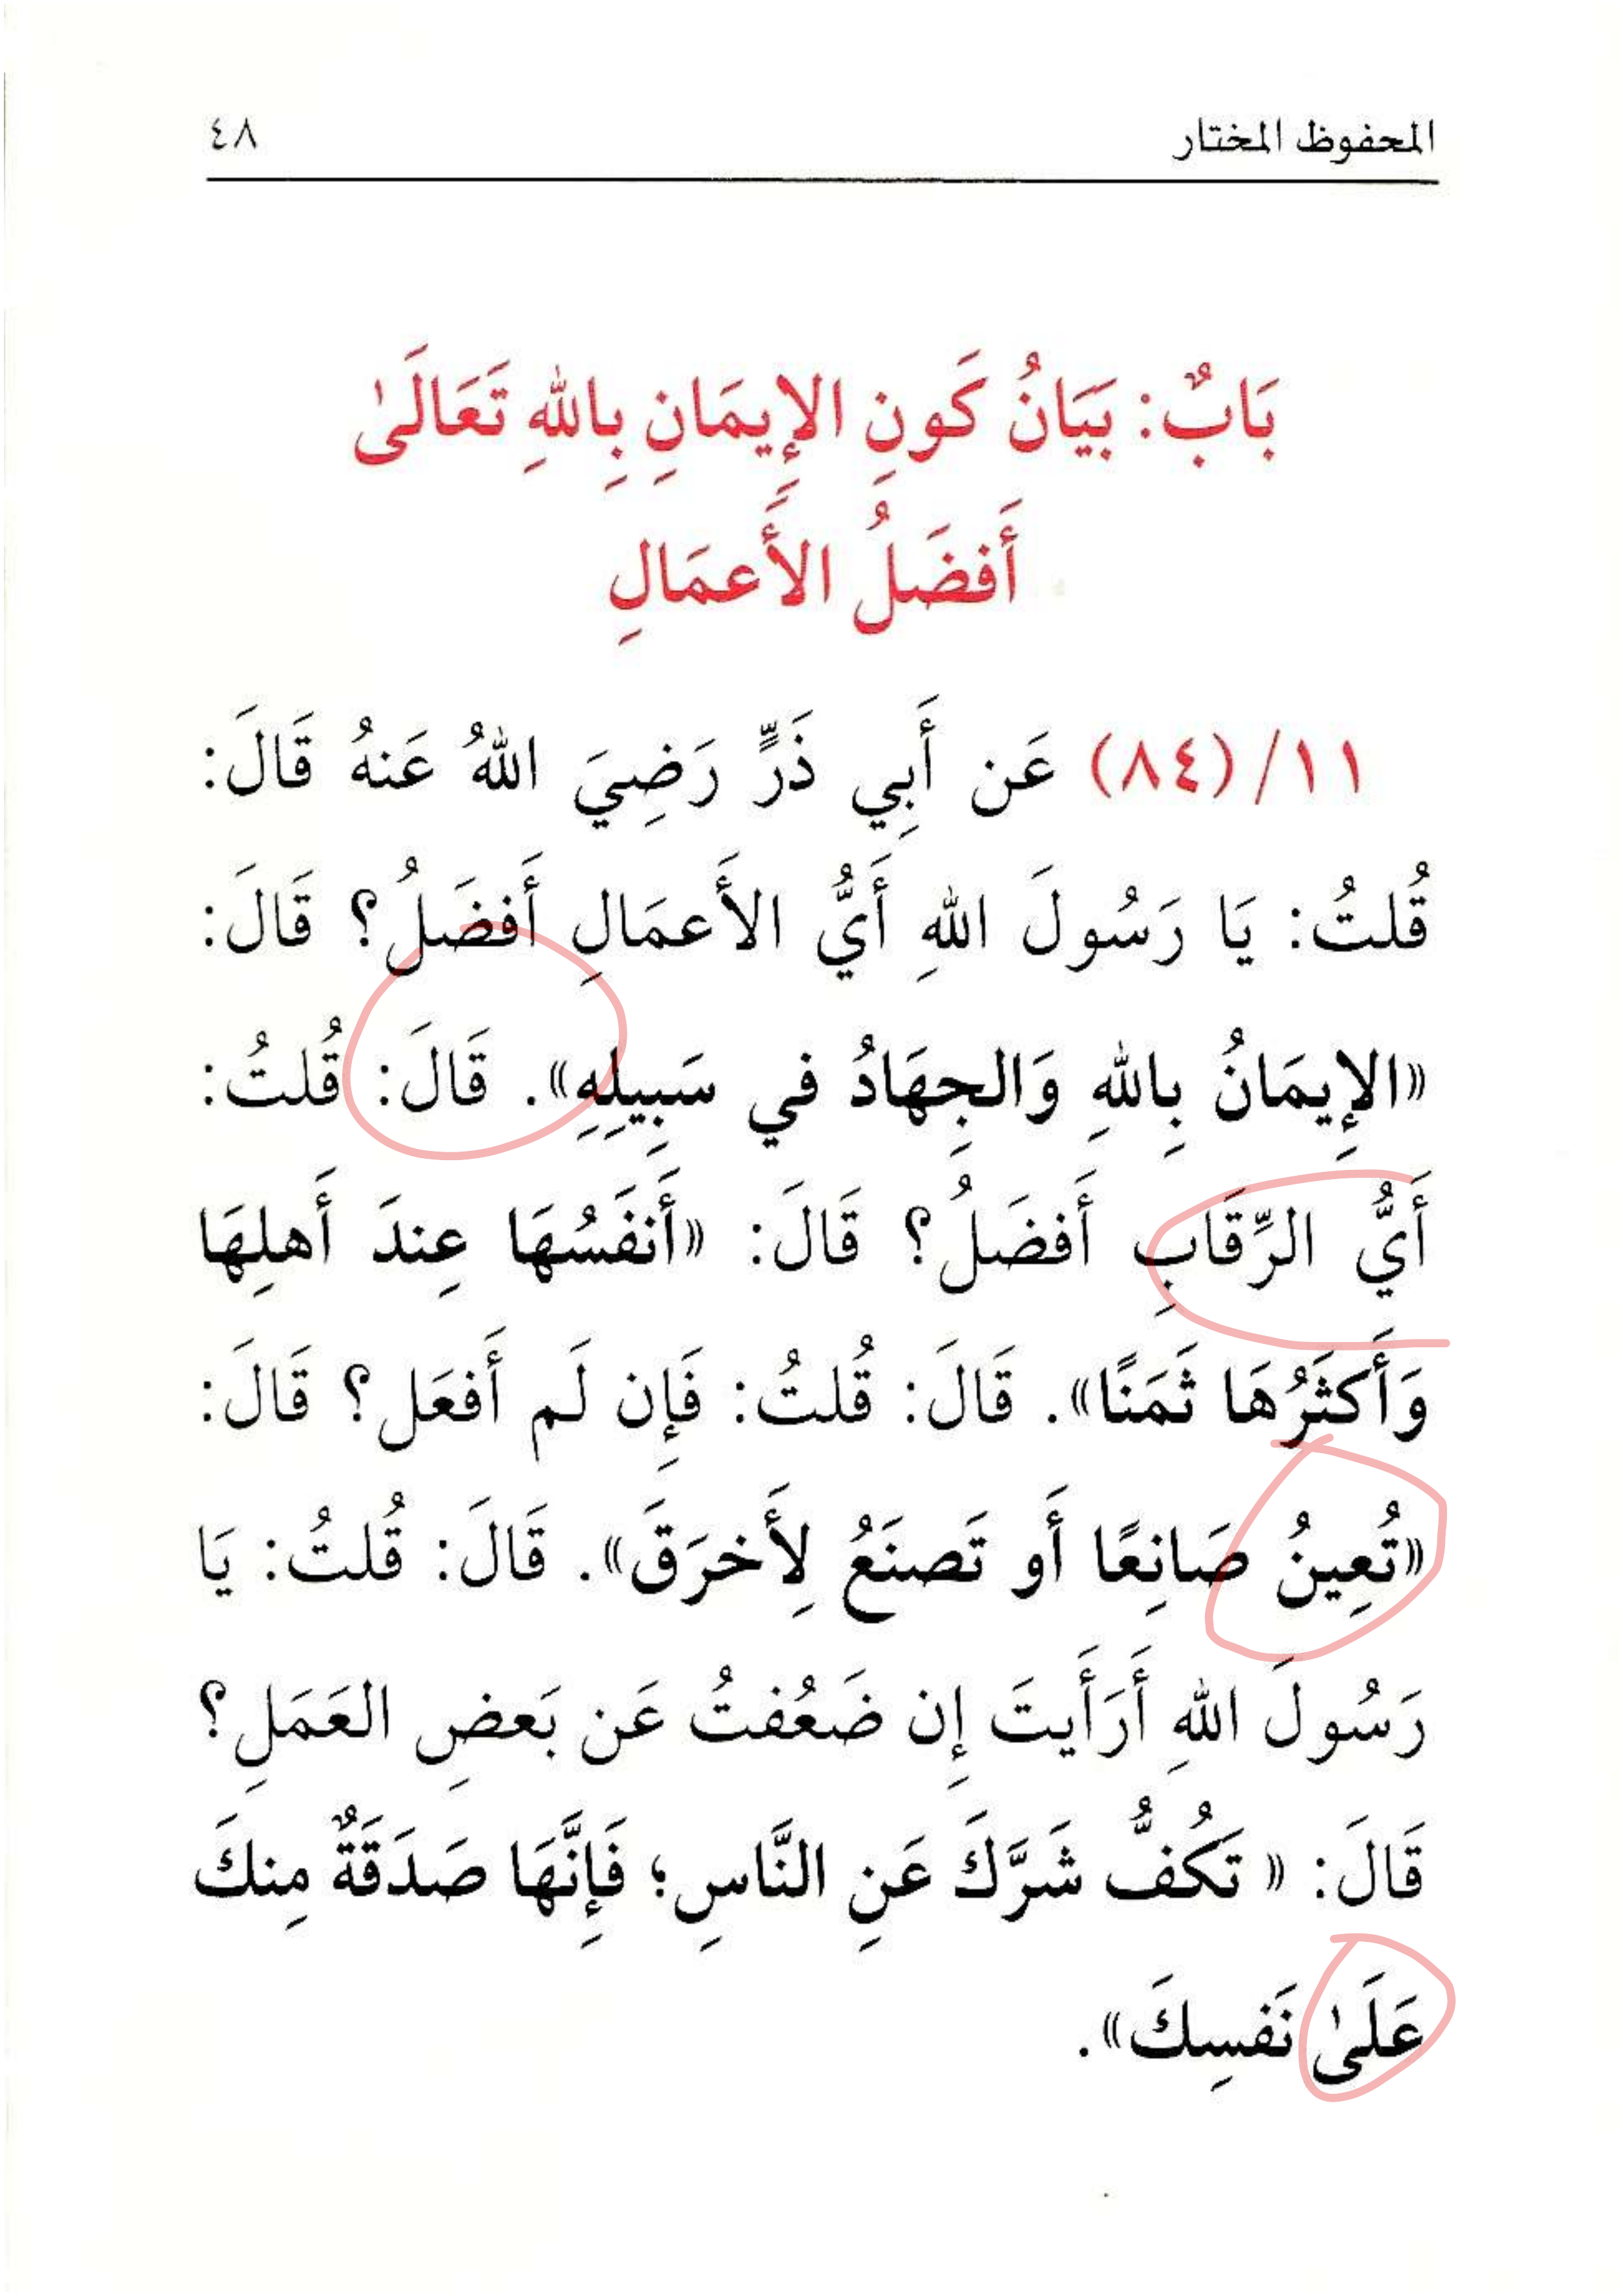 المحفوظ المختار ٤٨
بَابٌ: بَيَانُ كَونِ الإِيمَانِ بِاللهِ تَعَالَىٰ
أَفضَلُ الأَعمَالِ
١١/(٨٤) عَن أَبِي ذَرٍّ رَضِيَ اللهُ عَنهُ قَالَ:
قُلتُ: يَا رَسُولَ اللهِ أَيُّ الأَعمَالِ أَفضَلُ؟ قَالَ:
«الإِيمَانُ بِاللهِ وَالجِهَادُ في سَبِيلِهِ». قَالَ: قُلتُ:
أَيُّ الرِّقَابِ أَفضَلُ؟ قَالَ: «أَنفَسُهَا عِندَ أَهلِهَا
وَأَكثَرُهَا ثَمَنًا». قَالَ: قُلتُ: فَإِن لَم أَفعَل؟ قَالَ:
«تُعِينُ صَانِعًا أَو تَصنَعُ لِأَخرَقَ». قَالَ: قُلتُ: يَا
رَسُولَ اللهِ أَرَأَيتَ إِن ضَعُفتُ عَن بَعضِ العَمَلِ؟
قَالَ: « تَكُفُّ شَرَّكَ عَنِ النَّاسِ؛ فَإِنَّهَا صَدَقَةٌ مِنكَ
عَلَىٰ نَفسِكَ».